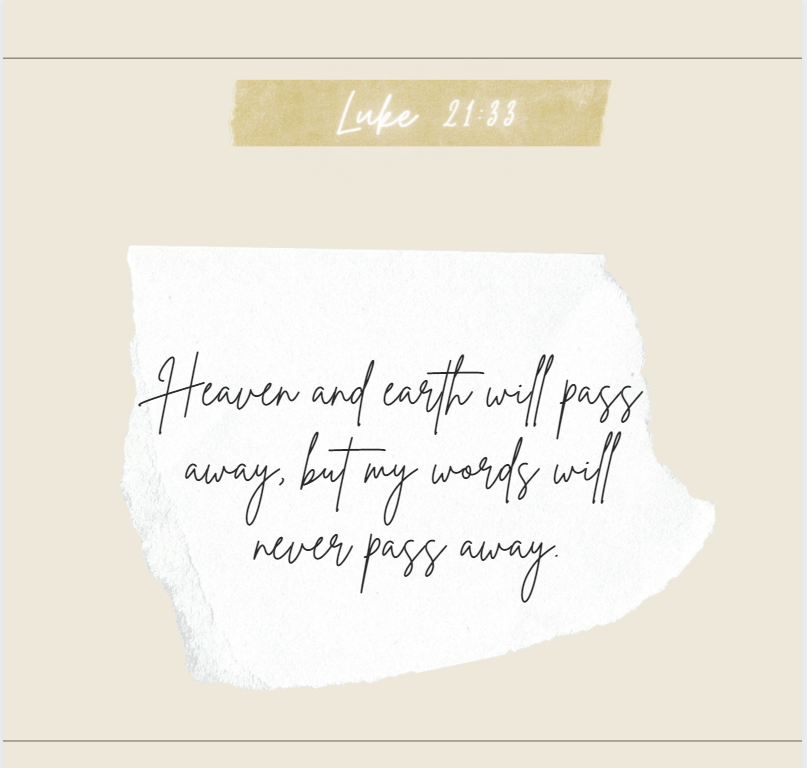 Luke 21:33
Heaven and earth will pass
away, but my words will
never pass away.